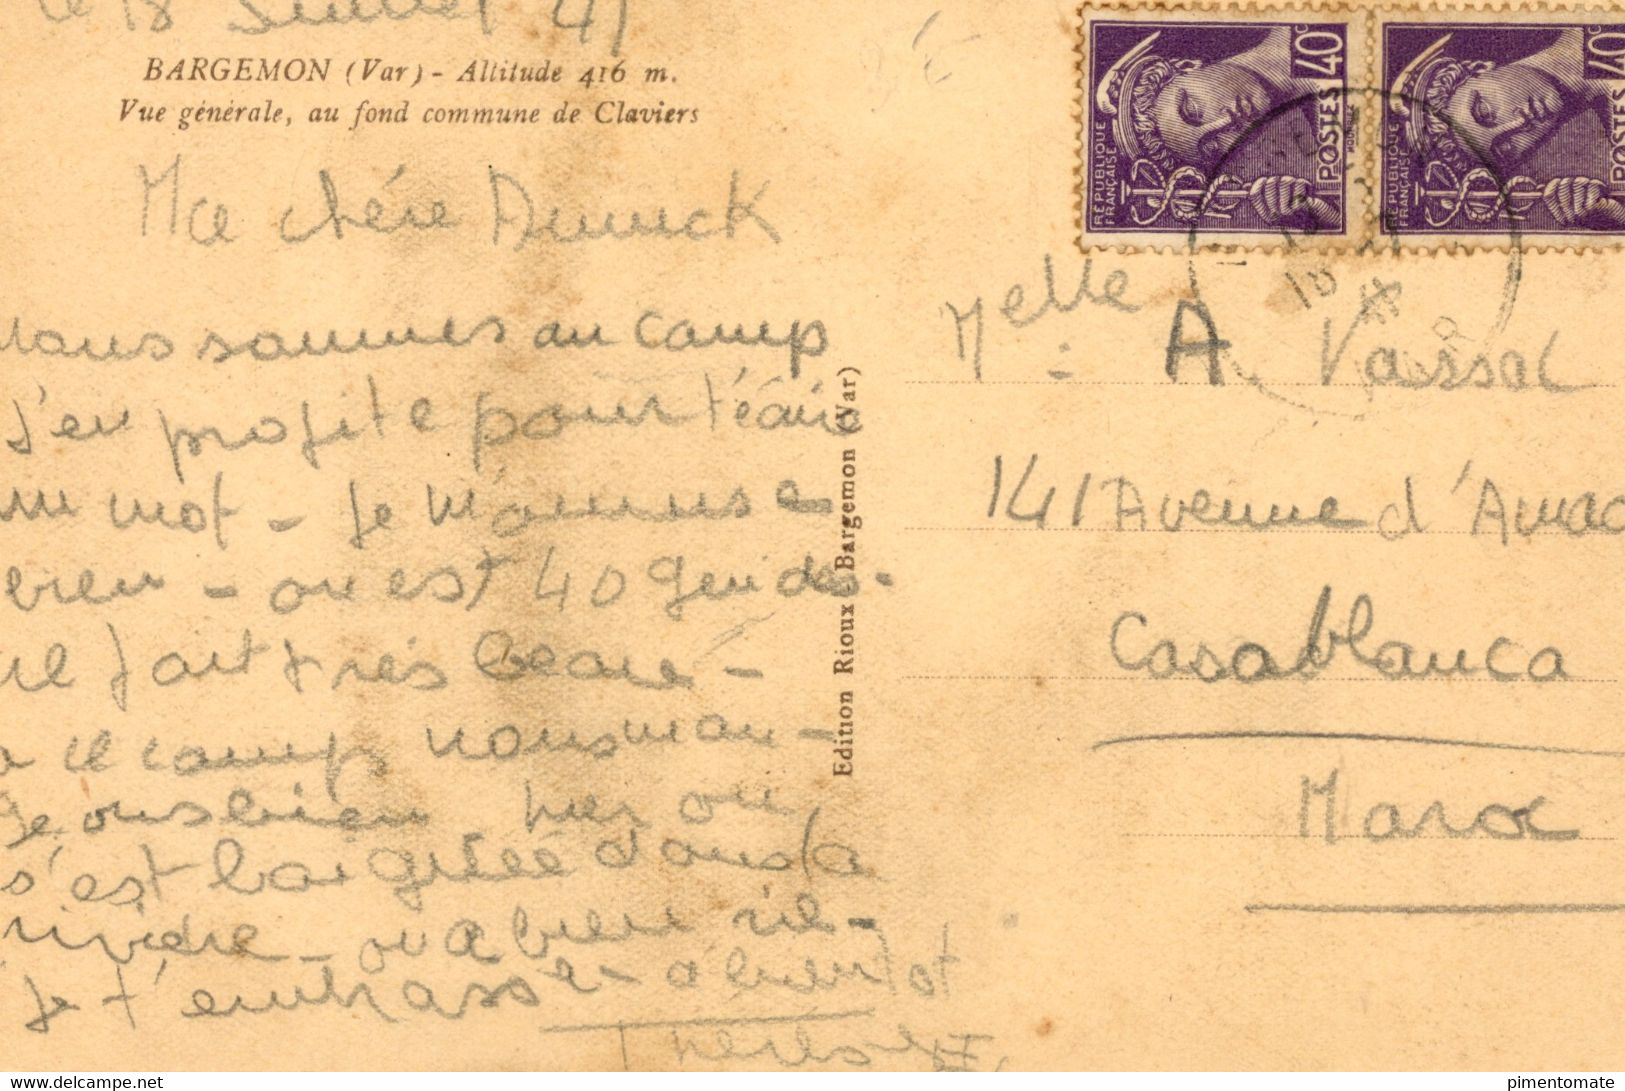 le 18 Juillet 41
BARGEMON (Var) - Altitude 416 m.
Vue générale, au fond commune de Claviers
Ma chère Annick
Nous sommes au camp
J'en profite pour t'écrire
un mot - Je m'amuse
bien - on est 40 guides.
il fait très beau -
il camp nous man-
geons bien hier on
s'est baignée dans la
rivière - on a bien ri -
Je t'embrasse - a bientot
Edition Rioux Bargemon (Var)
40c
POSTES
RÉPUBLIQUE
FRANÇAISE
40
POSTES
RÉPUBLIQUE
FRANÇAISE
18
Melle A. Vassal
141 Avenue d'Amad
Casablanca
Maroc
pimentomate